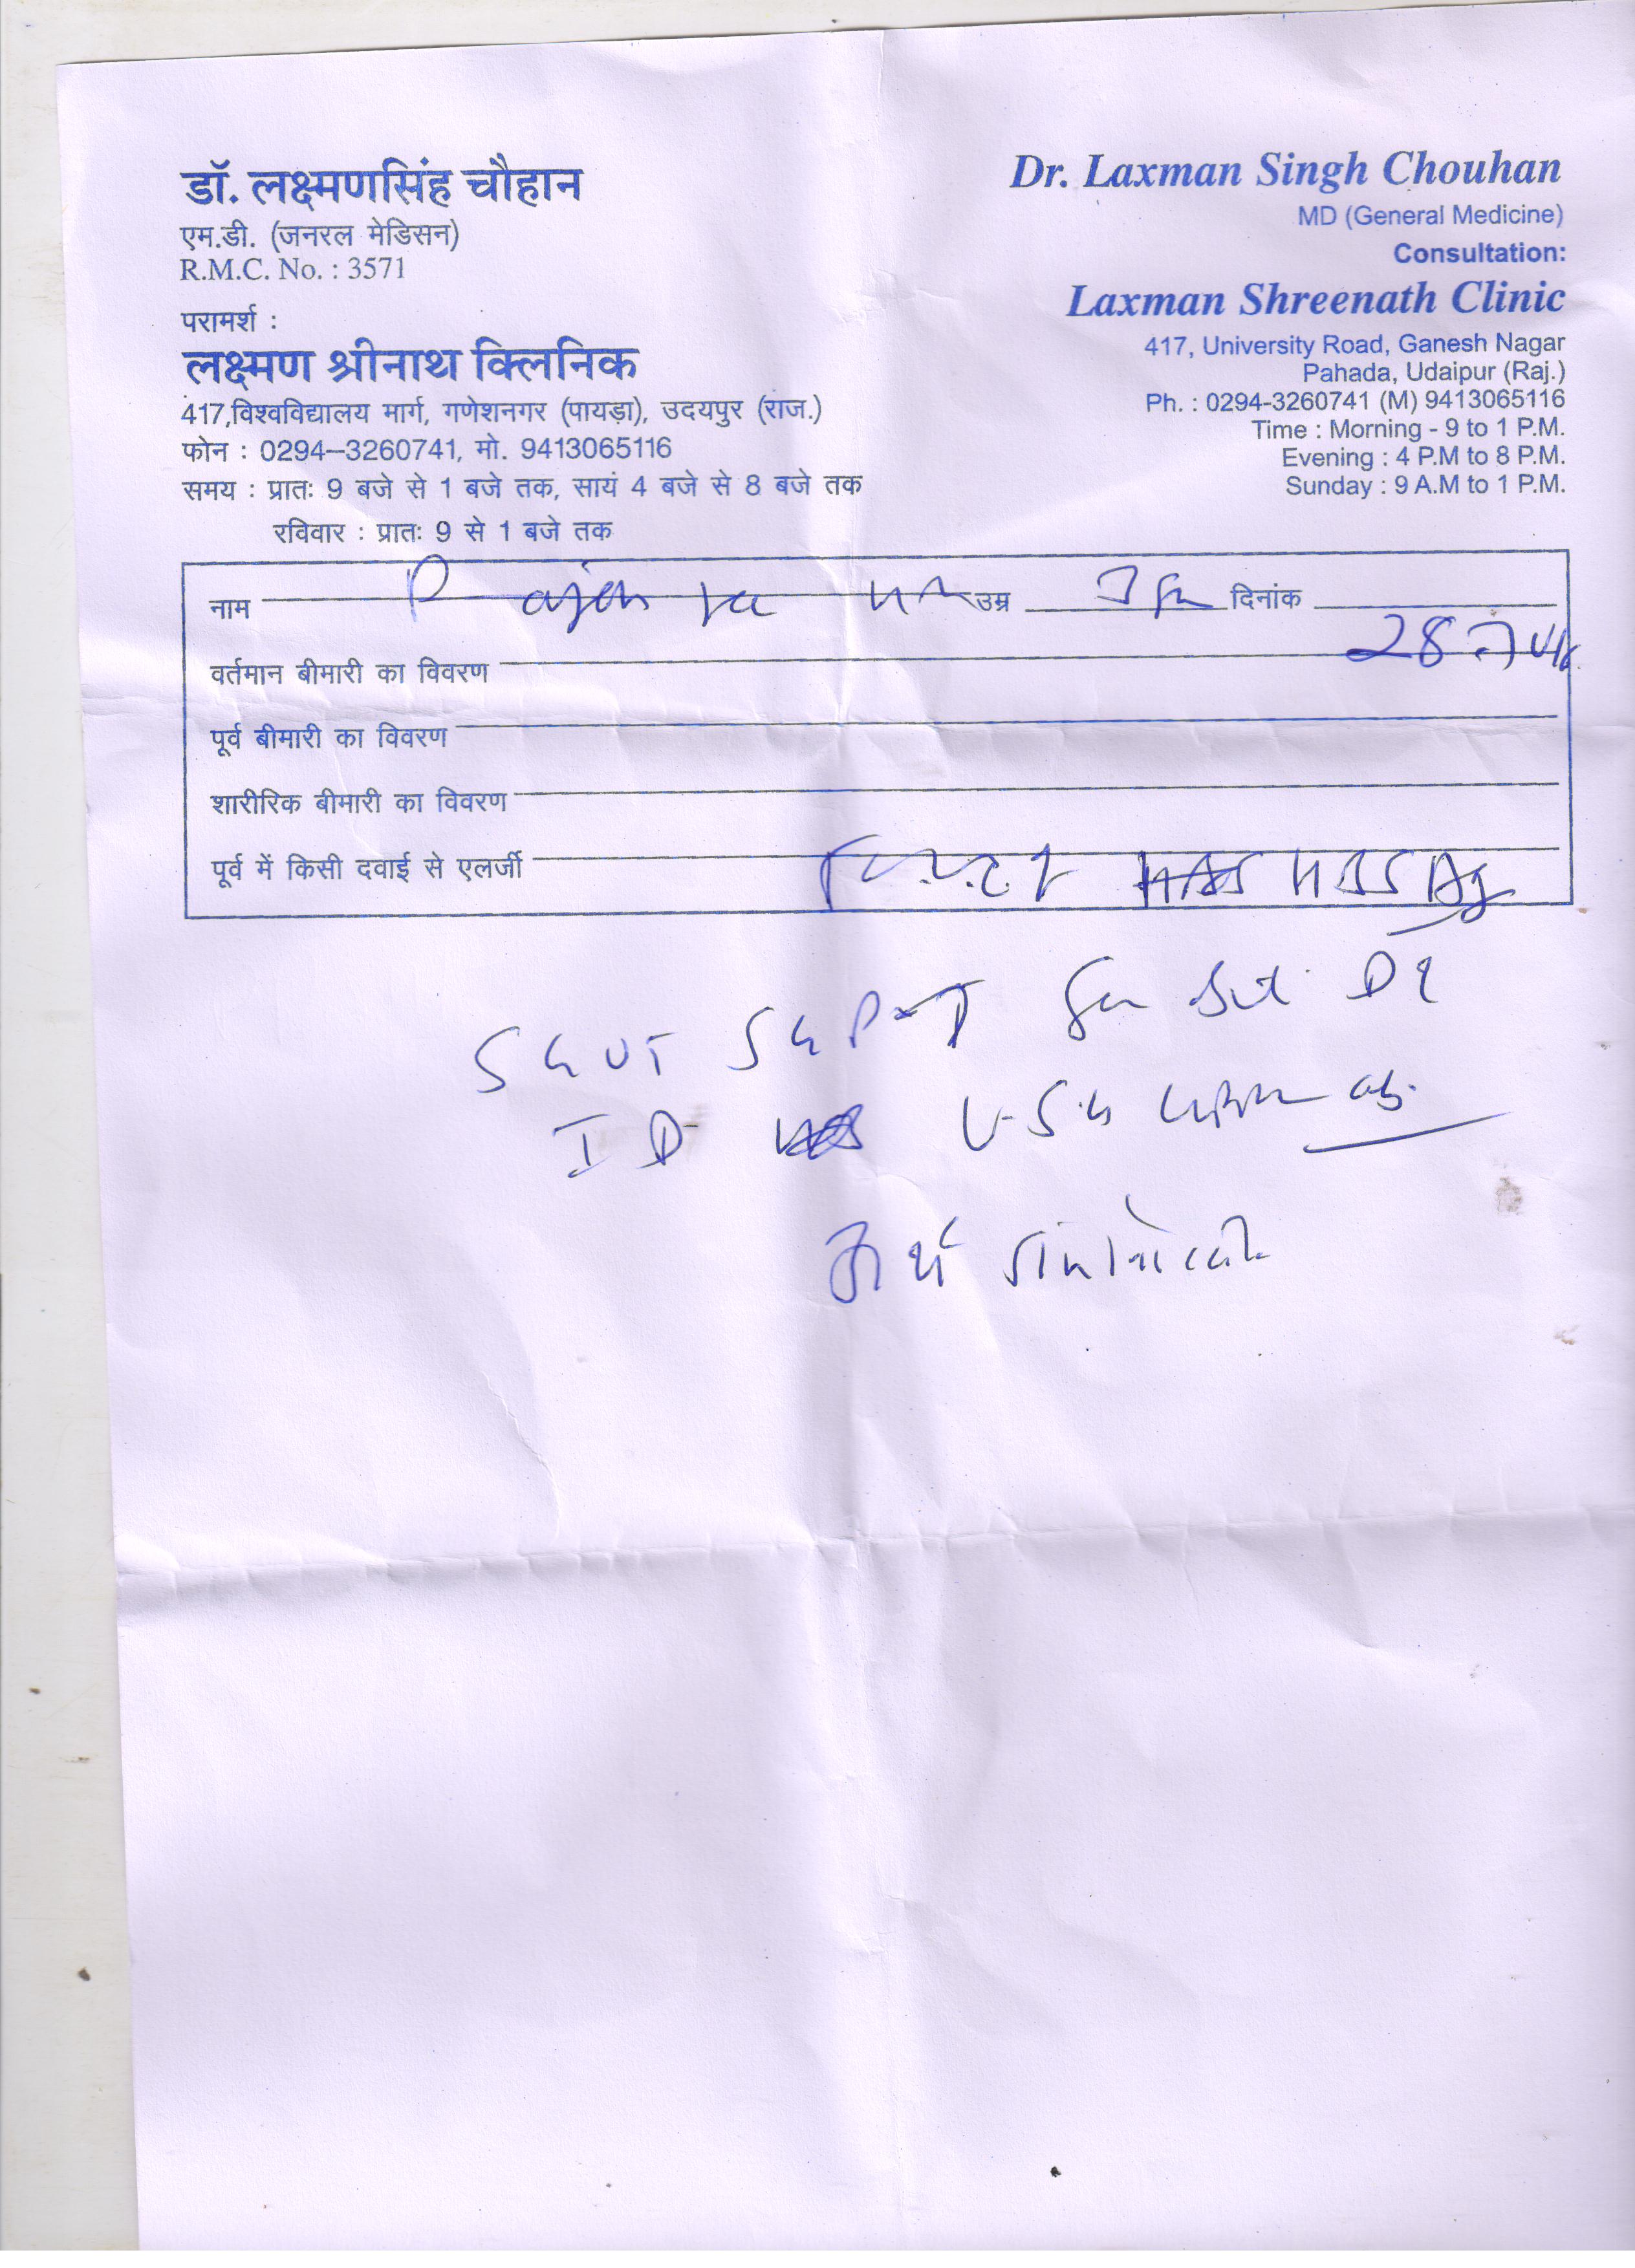 डॉ. लक्ष्मणसिंह चौहान
एम.डी. (जनरल मेडिसन)
R.M.C. No. : 3571
परामर्श :
लक्ष्मण श्रीनाथ क्लिनिक
417,विश्वविद्यालय मार्ग, गणेशनगर (पायड़ा), उदयपुर (राज.)
फोन : 0294–3260741, मो. 9413065116
समय : प्रातः 9 बजे से 1 बजे तक, सायं 4 बजे से 8 बजे तक
रविवार : प्रातः 9 से 1 बजे तक
Dr. Laxman Singh Chouhan
MD (General Medicine)
Consultation:
Laxman Shreenath Clinic
417, University Road, Ganesh Nagar
Pahada, Udaipur (Raj.)
Ph. : 0294-3260741 (M) 9413065116
Time : Morning - 9 to 1 P.M.
Evening : 4 P.M to 8 P.M.
Sunday : 9 A.M to 1 P.M.
नाम उम्र दिनांक
28
वर्तमान बीमारी का विवरण
पूर्व बीमारी का विवरण
शारीरिक बीमारी का विवरण
पूर्व में किसी दवाई से एलर्जी
SGOT SGPT
ID U.S.G